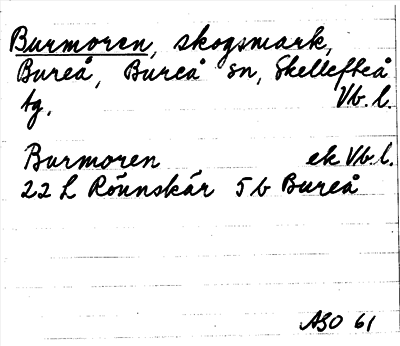 Burmoren, skogsmark,
Bureå, Bureå sn, Skellefteå
tg. Vb. l.
Burmoren ek Vb. l.
22 L Rönnskär 5 b Bureå
ASO 61